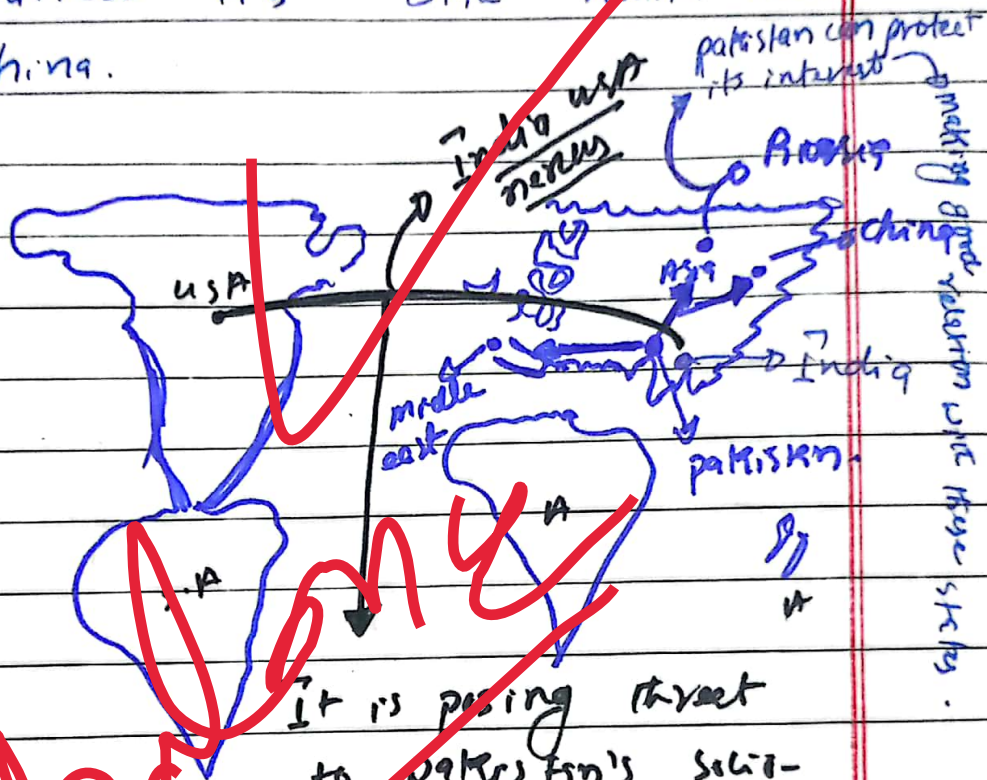 hina.
India USA
nexus
pakistan can protect
its interest
making good relation with these states.
Russia
China
Asia
USA
India
middle
east
pakistan.
A
A
A
Done
It is posing threat
to pakistan's socio-